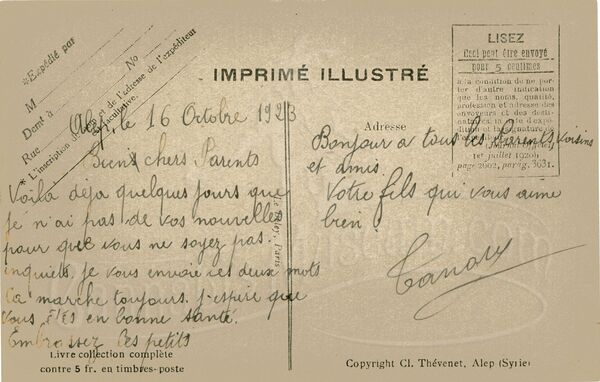 *Expédié par
M
No
Demt à
Rue
* L'inscription de l'adresse de l'expéditeur
est facultative.
IMPRIMÉ ILLUSTRÉ
LISEZ
Ceci peut être envoyé
pour 5 centimes
à la condition de ne por-
ter d'autre indication
que les noms, qualité,
profession et adresse des
envoyeurs et des desti-
1er juillet 1920)
page 2602, parag. 3631.
Alep, le 16 Octobre 1923
Bien chers Parents
Voila déja quelques jours que
je n'ai pas de vos nouvelles
pour que vous ne soyez pas
inquiets je vous envoie ces deux mots
Ca marche toujours. j'espère que
vous êtes en bonne santé.
Embrassez les petits
Adresse
Bonjour a tous les Parents voisins
et amis
Votre fils qui vous aime
bien
Livre collection complète
contre 5 fr. en timbres-poste
Paris
Copyright Cl. Thévenet, Alep (Syrie)